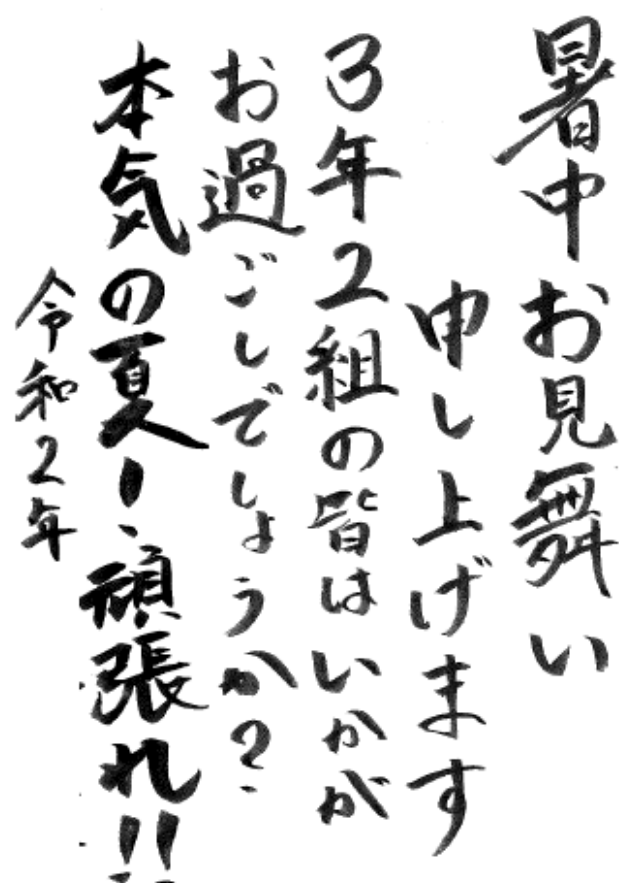 暑中お見舞い
申し上げます
3年2組の皆はいかが
お過ごしでしょうか?
本気の夏!、頑張れ!!
令和2年